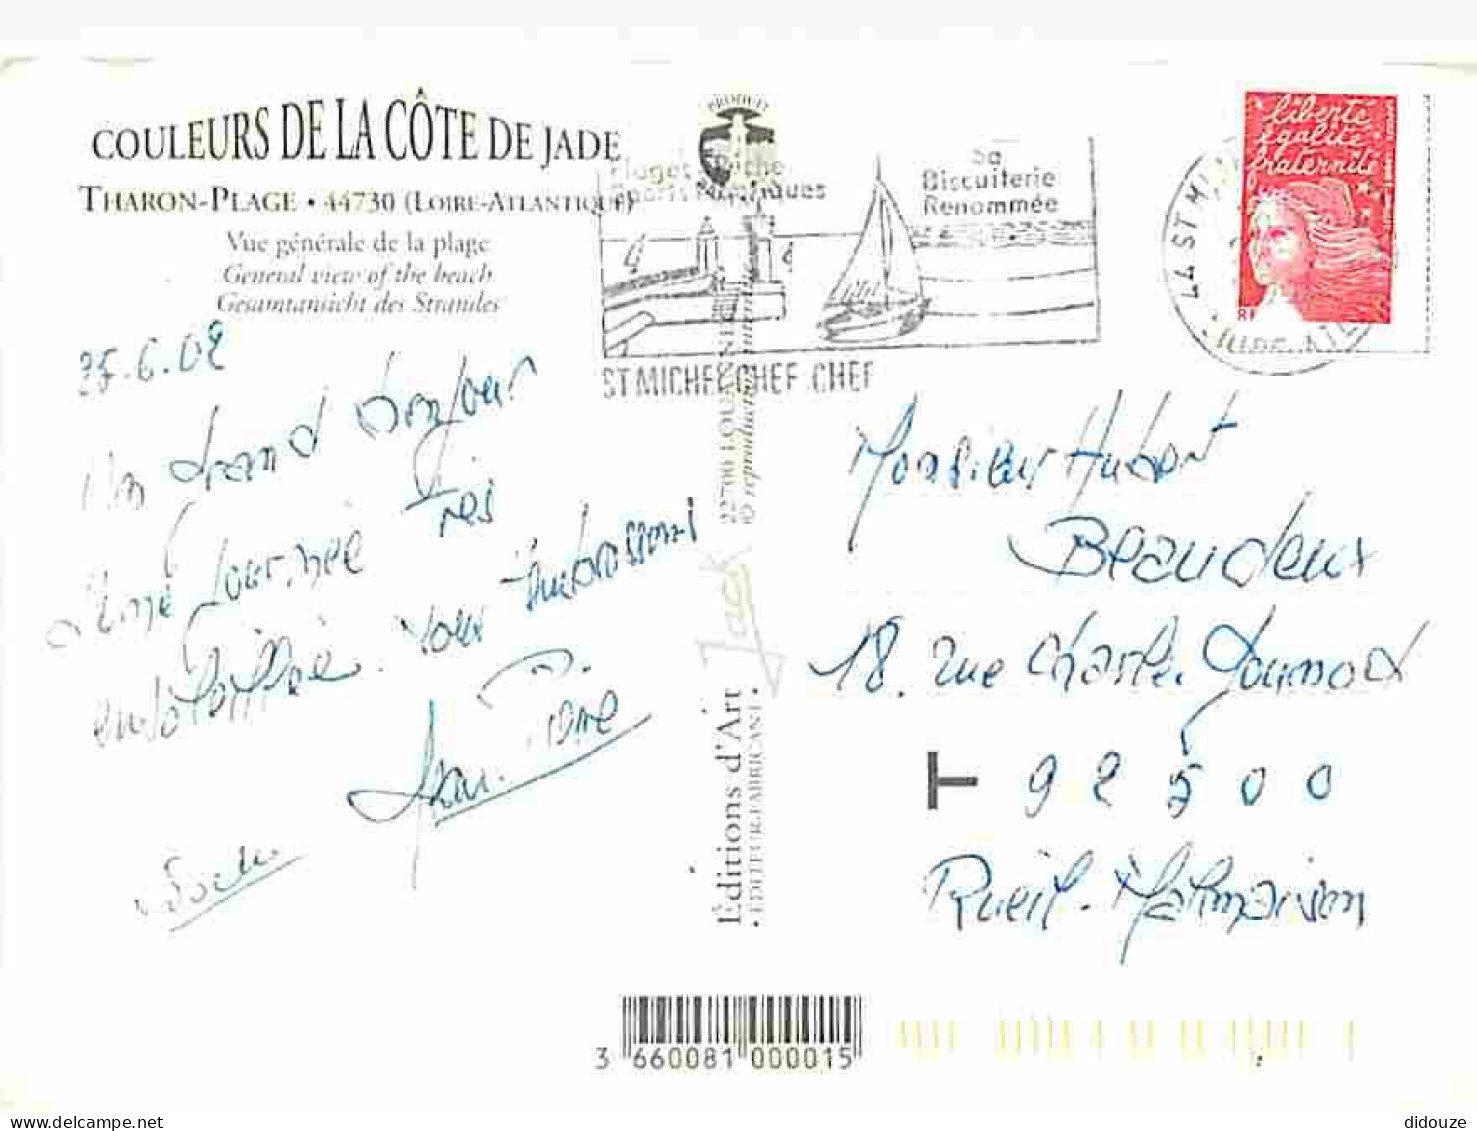 COULEURS DE LA CÔTE DE JADE
THARON-PLAGE • 44730 (LOIRE-ATLANTIQUE)
Vue générale de la plage
General view of the beach
Gesamtansicht des Strandes
PRODUIT
Plages Pêche
Sports Nautiques
Sa
Biscuiterie
Renommée
ST MICHEL CHEF CHEF
liberté
égalité
fraternité
RF
44 ST MI
25.6.02
Un grand bonjour
journée très
ensoleillée. Vous embrassons
Jean. Pierre
Monsieur Hubert
Beaudeux
18. rue Charles Gounod
T 92500
Rueil-Malmaison
22700 LOUANNEC
© reproduction interdite
Jack
Éditions d'Art
• EDITEUR-FABRICANT •
3 660081 000015
delcampe.net
didouze